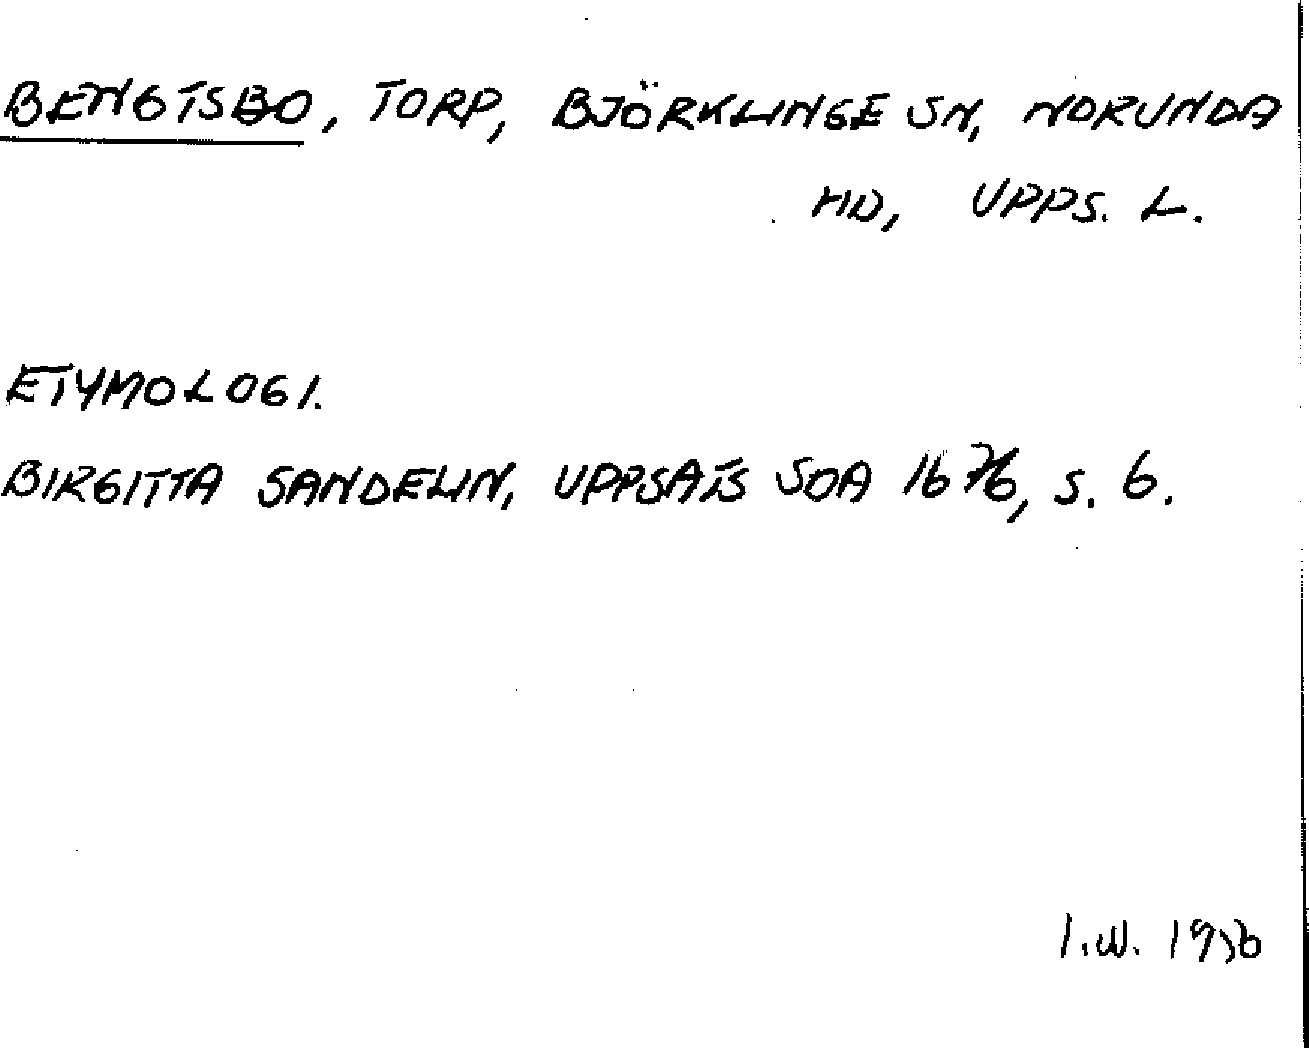 BENGTSBO, TORP, BJÖRKLINGE SN, NORUNDA
HD, UPPS. L.
ETYMOLOGI.
BIRGITTA SANDELIN, UPPSATS SOA 1676, S. 6.
I.W.